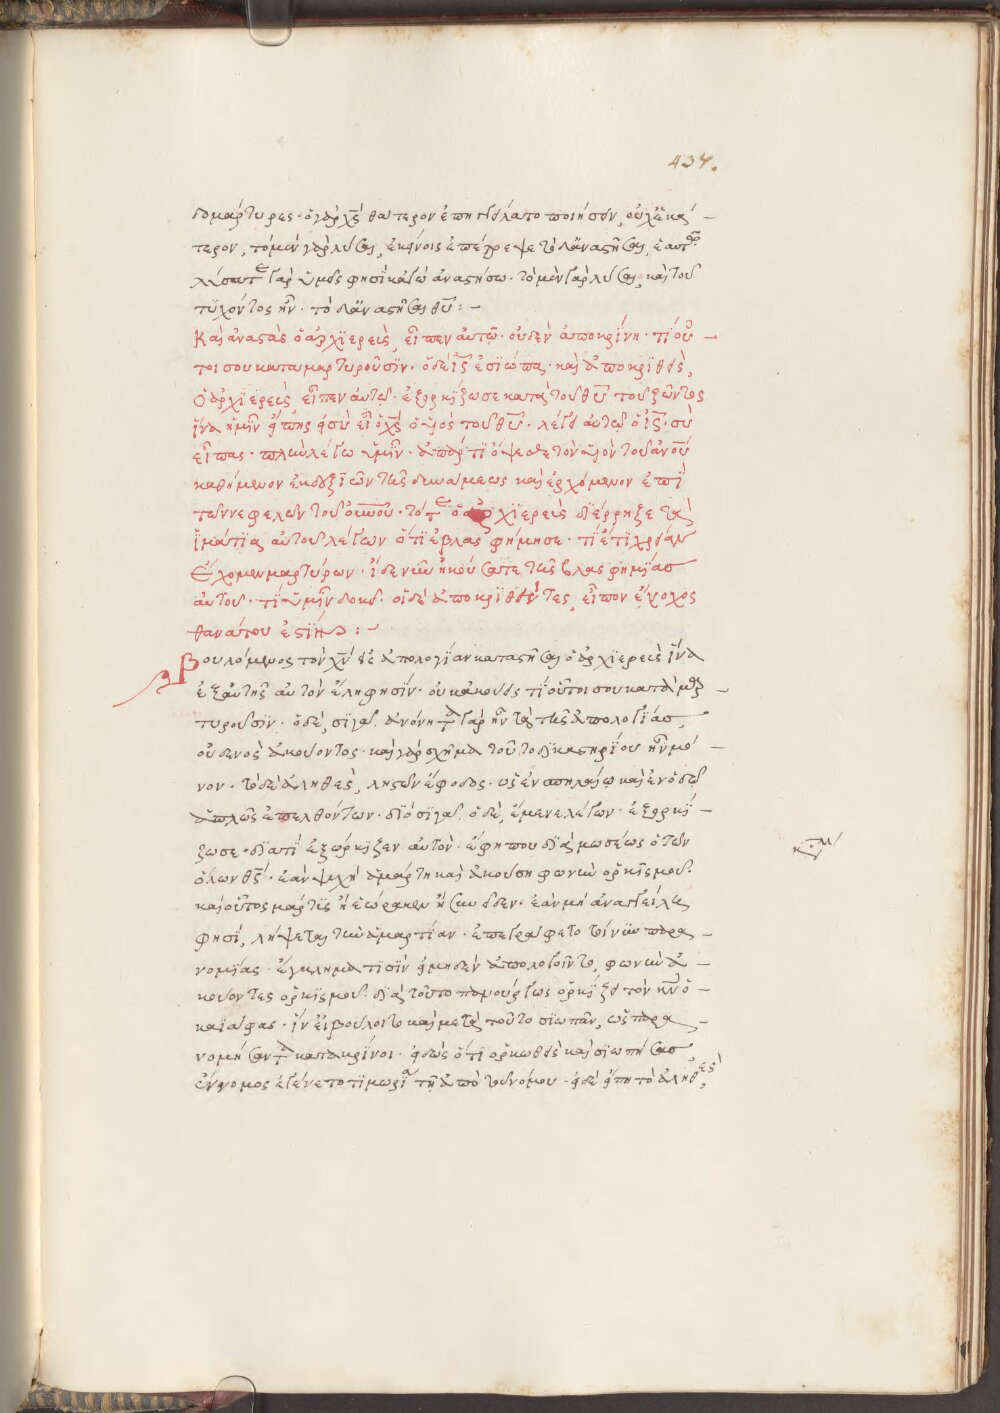 437.
δομάρτυρες · ὁ γὰρ χς θάτερον ἐπηγγείλατο ποιήσειν, οὐχ ἑκά
τερον, τὸ μὲν γὰρ λῦσαι, ἐκείνοις ἐπέτρεψε τὸ δ' ἀναστῆσαι, ἑαυτῷ
λύσατε γὰρ ὑμεῖς φησὶ κἀγὼ ἀναστήσω · τὸ μὲν γὰρ λῦσαι, καὶ τοῦ
τυχόντος ἦν · τὸ δ' ἀναστῆσαι θυ :
Καὶ ἀναστὰς ὁ ἀρχιερεὺς, εἶπεν αὐτῷ · οὐδὲν ἀποκρίνη · τί οὗ
τοι σου καταμαρτυροῦσιν · ὁ δὲ ις ἐσιώπα · καὶ ἀποκριθεὶς,
Ὁ ἀρχιερεὺς εἶπεν αὐτῷ · ἐξορκίζω σε κατὰ τοῦ θυ τοῦ ζῶντος
ἵνα ἡμῖν εἴπης εἰ σὺ εἶ ὁ χς ὁ υἱὸς τοῦ θυ · λέγει αὐτῷ ὁ ις · σὺ
εἶπας · πλὴν λέγω ὑμῖν · ἀπάρτι ὄψεσθε τὸν υἱὸν τοῦ ἀνου
καθήμενον ἐκ δεξιῶν τῆς δυνάμεως καὶ ἐρχόμενον ἐπὶ
τῶν νεφελῶν τοῦ οὐνου · τότε ὁ ἀρχιερεὺς διέρρηξε τὰ
ἱμάτια αὐτοῦ λέγων ὅτι ἐβλασφήμησε · τί ἔτι χρείαν
Ἔχομεν μαρτύρων · ἴδε νῦν ἠκούσατε τῆς βλασφημίας
αὐτοῦ · τί ὑμῖν δοκεῖ · οἱ δὲ ἀποκριθέντες, εἶπον ἔνοχος
θανάτου ἐστίν :
Βουλόμενος τὸν χν εἰς ἀπολογίαν καταστῆσαι ὁ ἀρχιερεὺς ἵνα
ἐξ αὐτῆς αὐτὸν ἕλη φησίν · οὐκ ἀκούεις τί οὗτοι σου καταμαρ
τυροῦσιν · ὁ δὲ, σιγᾷ ἀνόνητα γὰρ ἦν τὰ τῆς ἀπολογίας
οὐδενὸς ἀκούοντος · καὶ γὰρ σχῆμα τοῦτο δικαστηρίου ἦν μό
νον · τὸ δὲ ἀληθὲς, ληστῶν ἔφοδος · ὡς ἐν σπηλαίῳ καὶ ἐν ὁδῷ
ἁπλῶς ἐπελθόντων · διὸ σιγᾷ. ὁ δὲ, ἔμενε λέγων · ἐξορκί
ζω σε · διατί ἐξώρκιζεν αὐτόν · ἔφη που διὰ μωσέως ὁ τῶν
ὅλων θς · ἐὰν ψυχὴ ἁμάρτη καὶ ἀκούση φωνὴν ὁρκισμοῦ ·
καὶ οὗτος μάρτυς ἢ ἑώρακεν ἢ σύνοιδεν · ἐὰν μὴ ἀναγγείλη
φησὶ, λήψεται τὴν ἁμαρτίαν · ἐπεγράφετο τοίνυν παρα
νομίας · ἔγκλημα τισὶν εἰ μηδὲν ἀπολογοῖντο, φωνὴν ἀ
κούοντες ὁρκισμοῦ. διὰ τοῦτο πανούργως ὁρκίζει τὸν κν ὁ
καϊάφας · ἵν' εἰ βούλοιτο καὶ μετὰ τοῦτο σιωπᾶν, ὡς παρα
νομήσαντα κατακρίνοι · εἰδὼς ὅτι ὁρκωθεὶς καὶ σιωπήσας,
ἔννομος ἐγένετο τιμωρία τῇ ἀπὸ τοῦ νόμου · εἰ δὲ εἴπη τὸ ἀληθές,